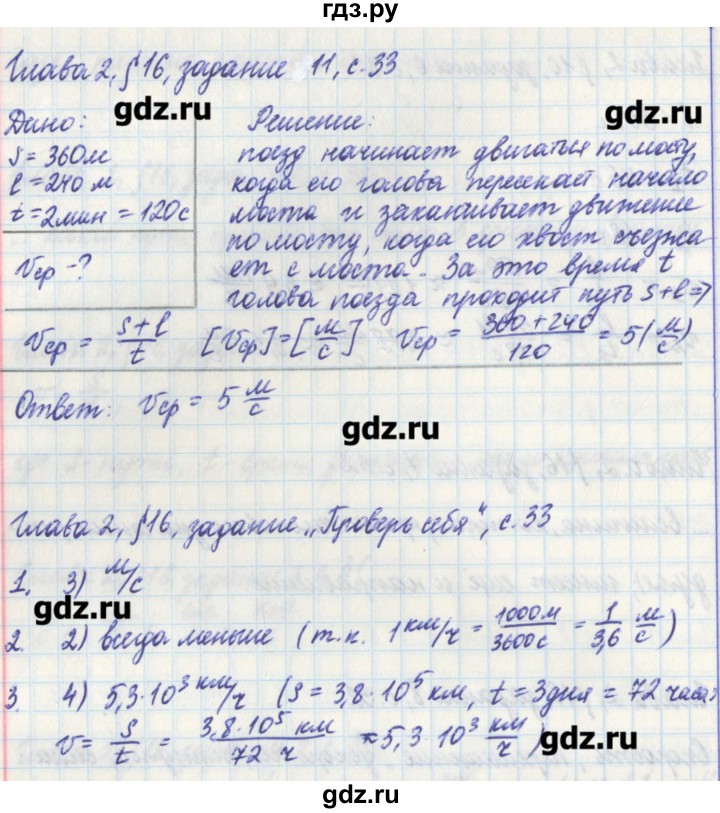 гдз.ру
Глава 2, §16, задание 11, с. 33
gdz.ru gdz.ru
Дано: Решение:
S = 360 м поезд начинает двигаться по мосту,
l = 240 м когда его голова пересекает начало
t = 2 мин = 120 с моста и заканчивает движение
по мосту, когда его хвост съезжа
Vср - ? ет с моста. За это время t
голова поезда проходит путь S+l =>
Vср = (S+l)/t [Vср] = [м/с] Vср = (360+240)/120 = 5 (м/с)
Ответ: Vср = 5 м/с
gdz.ru
Глава 2, §16, задание „Проверь себя“, с. 33
1. 3) м/с
gdz.ru
2. 2) всегда меньше (т.к. 1 км/ч = 1000м/3600с = 1/3,6 м/с)
3. 4) 5,3·10³ км/ч (S = 3,8·10⁵ км, t = 3 дня = 72 часа;
V = S/t = 3,8·10⁵ км/72 ч ≈ 5,3·10³ км/ч)
gdz.ru
gdz.ru